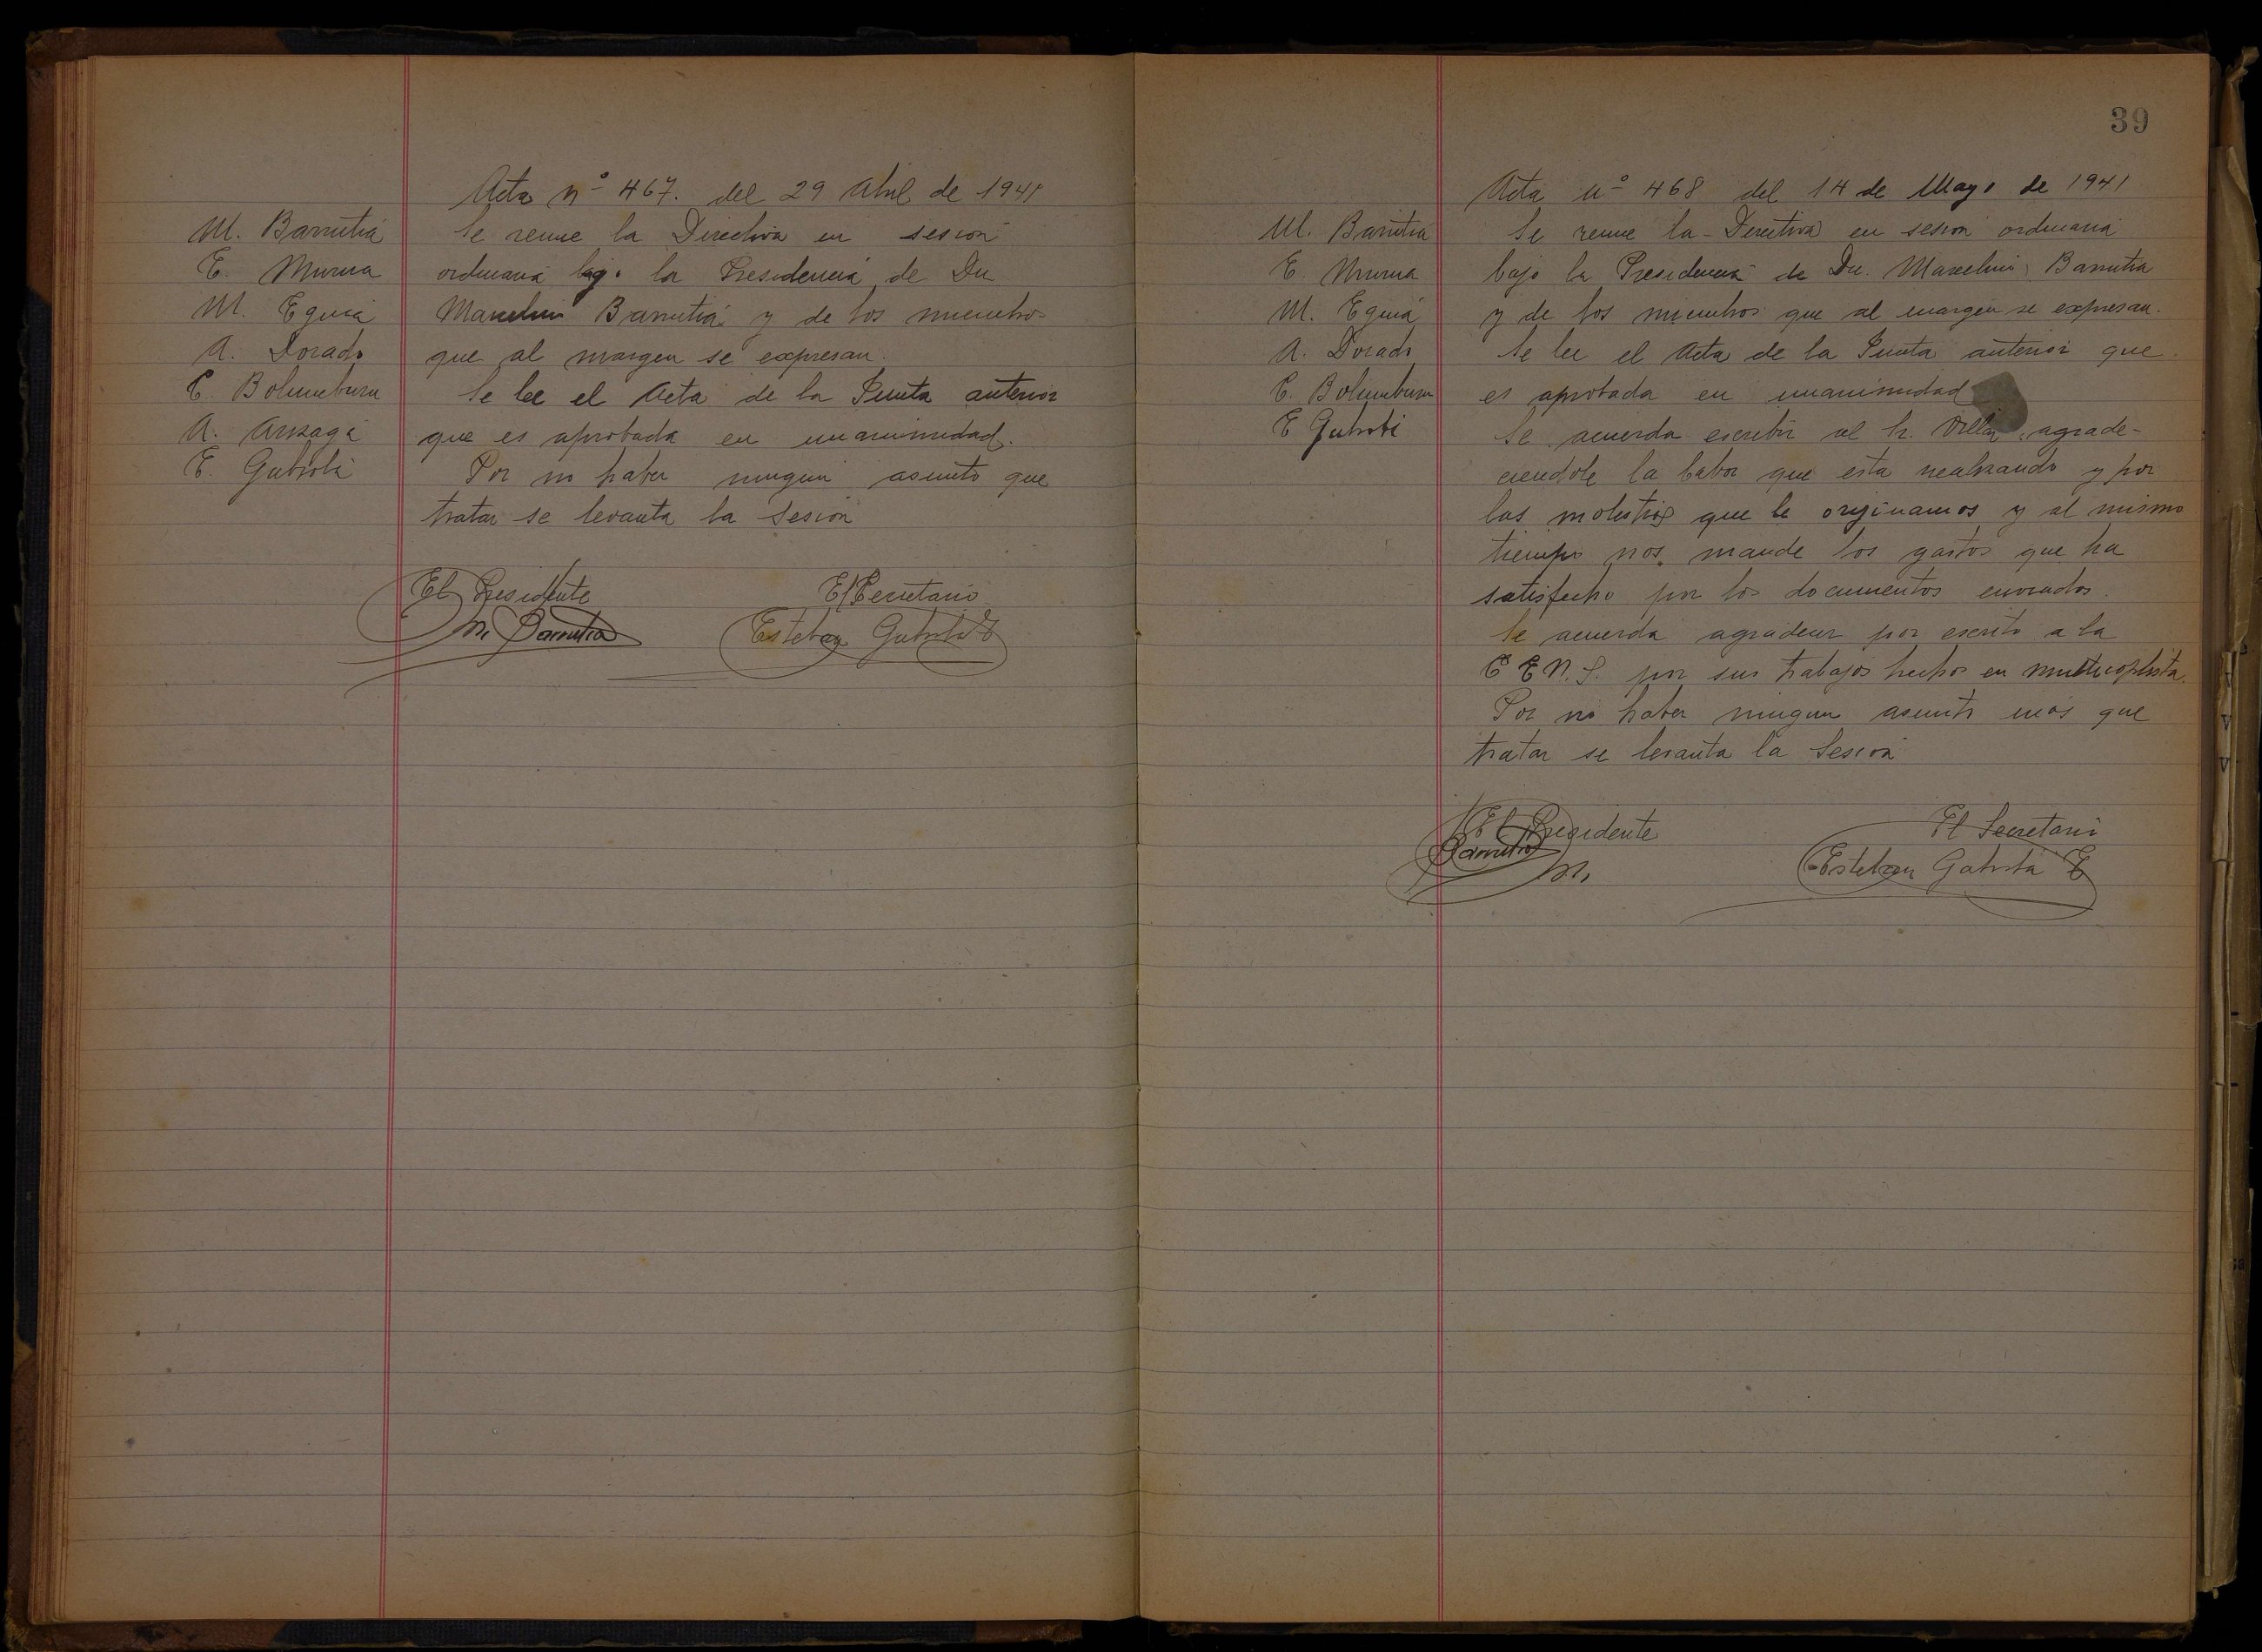 Acta nº 467. del 29 Abril de 1941
M. Barrutia
E. Murua
M. Eguia
A. Dorado
C. Bolumburu
A. Arizaga
E. Gabiola
Se reune la Directiva en sesion
ordinaria bajo la Presidencia de Dn
Marcelino Barrutia y de los miembros
que al margen se expresan.
Se lee el Acta de la Junta anterior
que es aprobada en unanimidad.
Por no haber ningun asunto que
tratar se levanta la Sesion
El Presidente El Secretario
M. Barrutia Esteban Gabiola E
39
Acta nº 468 del 14 de Mayo de 1941
M. Barrutia
E. Murua
M. Eguia
A. Dorado
C. Bolumburu
E Gabiola
Se reune la Directiva en sesion ordinaria
bajo la Presidencia de Dn. Marcelino Barrutia
y de los miembros que al margen se expresan.
Se lee el Acta de la Junta anterior que
es aprobada en unanimidad
Se acuerda escribir al Sr. Villar agrade-
ciendole la labor que esta realizando y por
las molestias que le originamos y al mismo
tiempo nos mande los gastos que ha
satisfecho por los documentos enviados.
Se acuerda agradecer por escrito a la
C E N. S. por sus trabajos hechos en multicoplista.
Por no haber ningun asunto mas que
tratar se levanta la Sesion
El Presidente El Secretario
Barrutia Esteban Gabiola E
M.